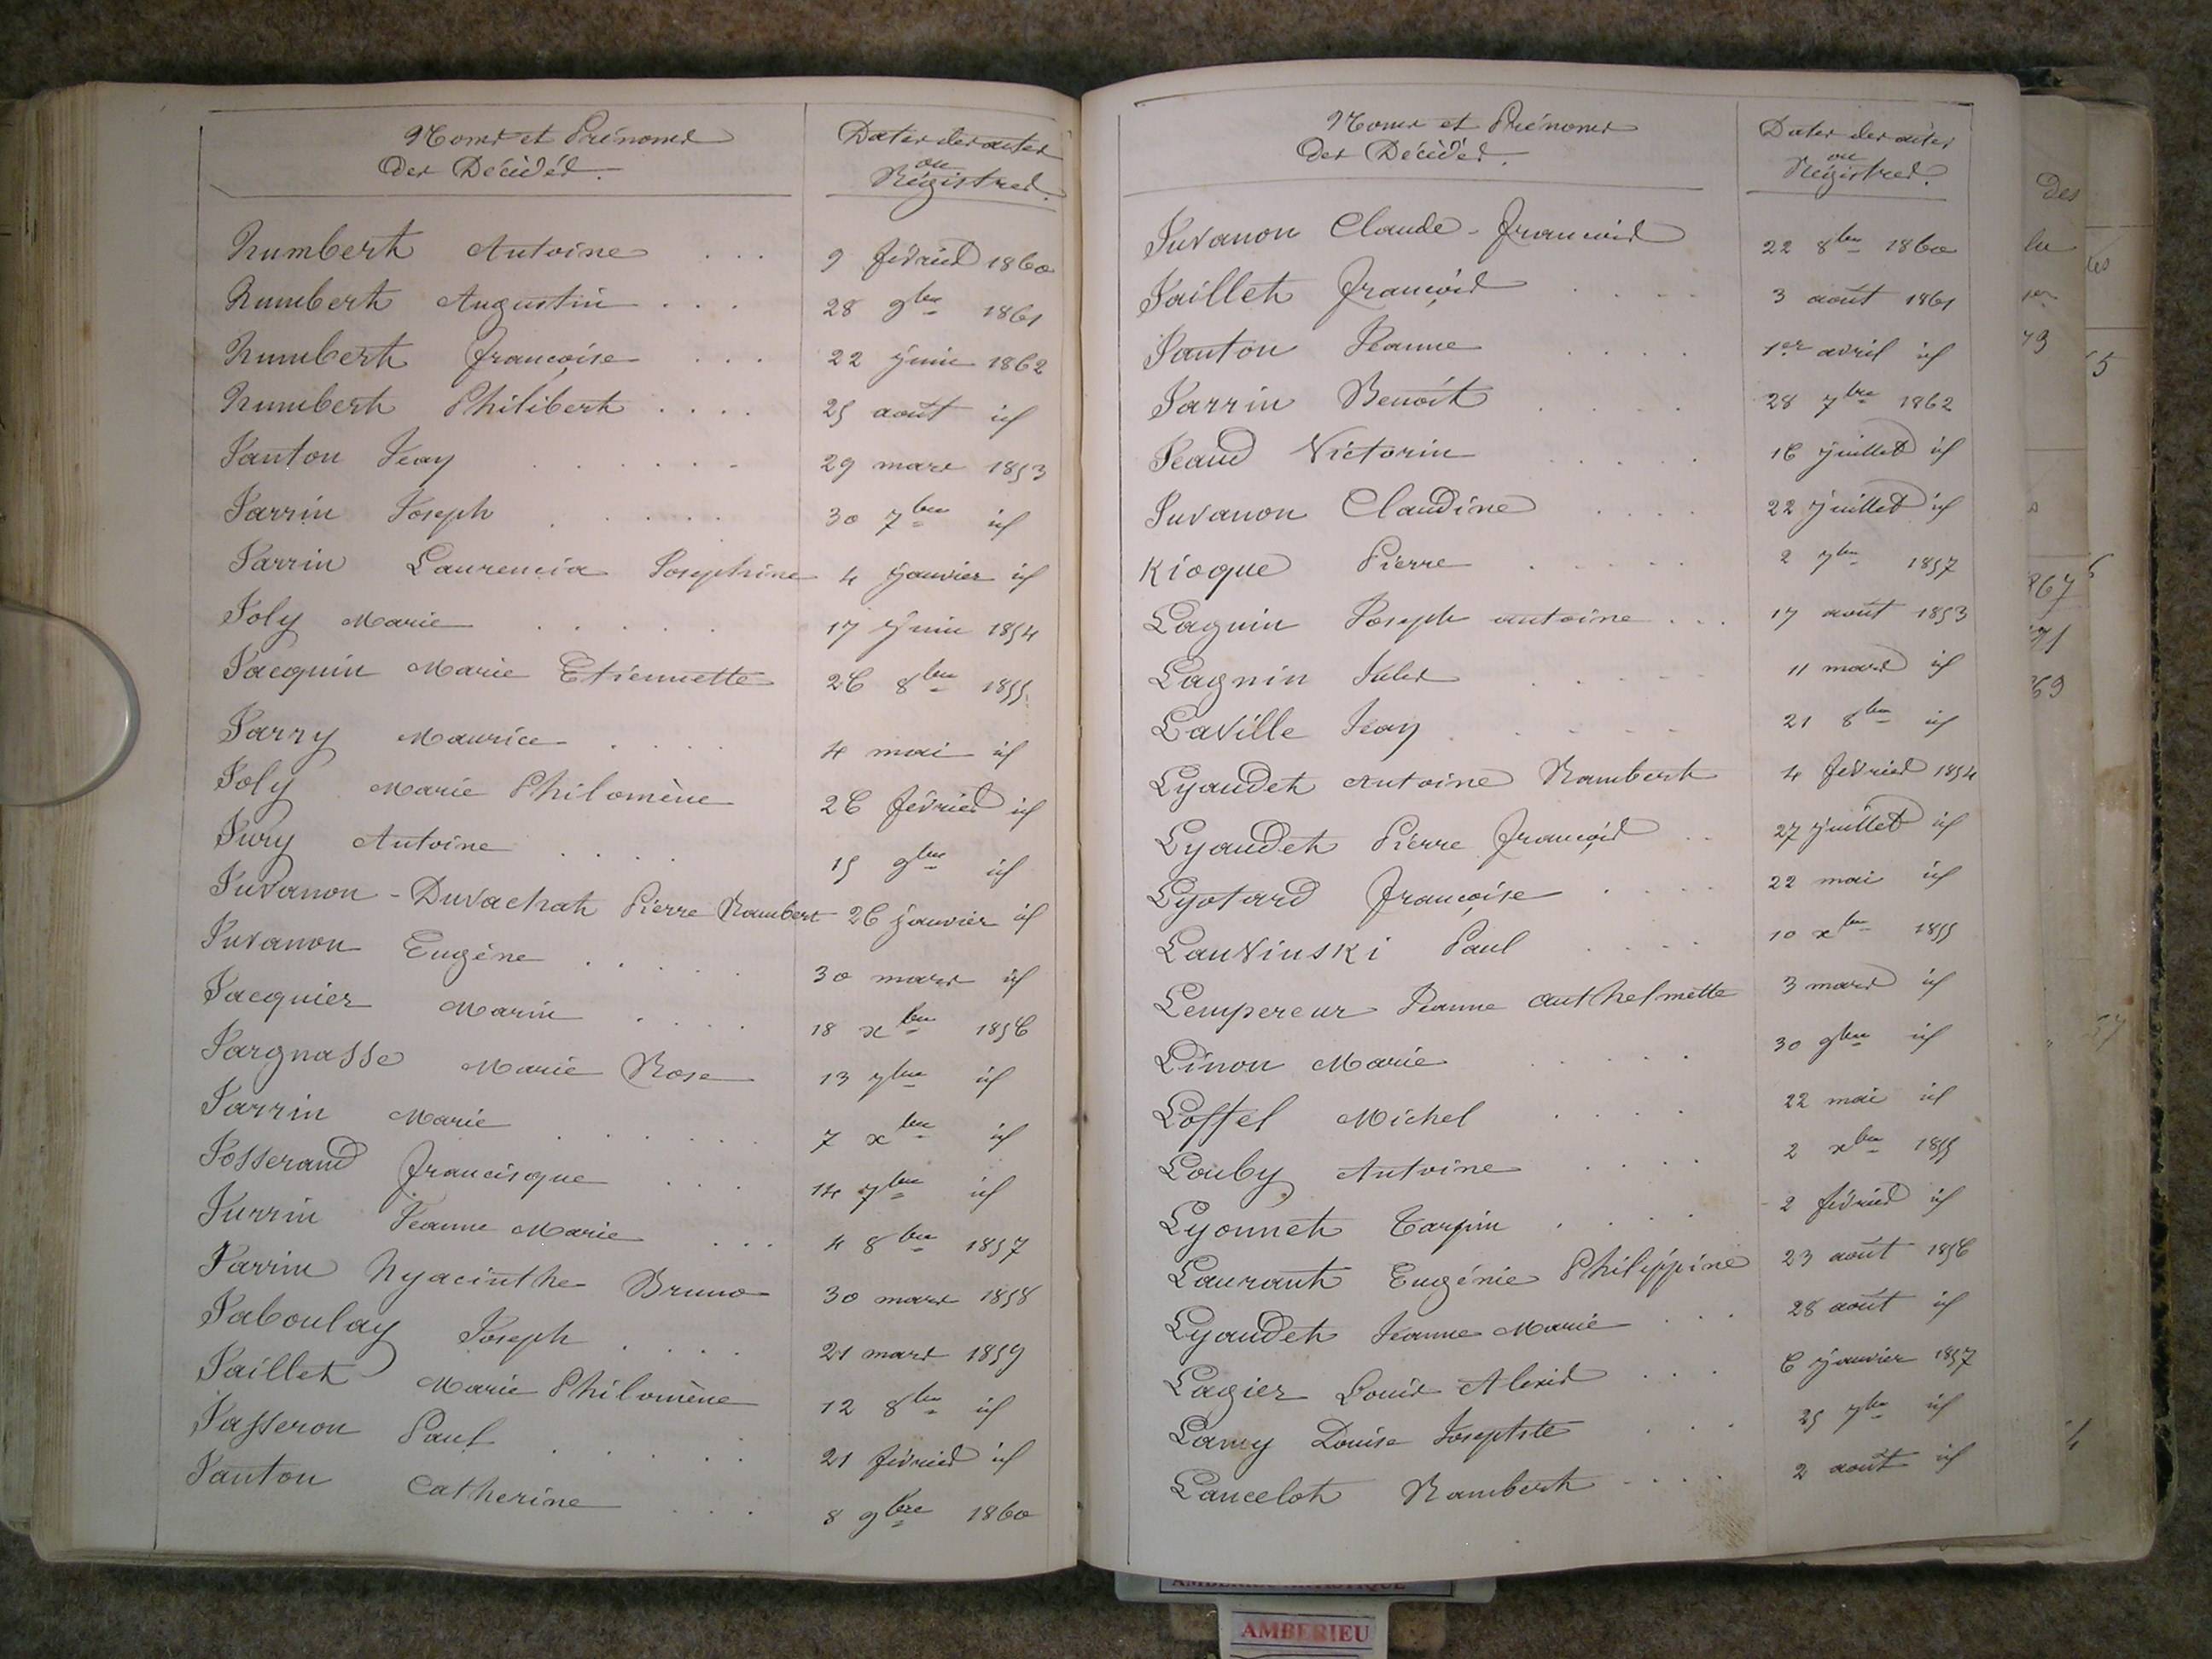 Noms et Prénoms
Des Décédés.
Dates des actes
ou
Régistres.
Humbert Antoine . . . 9 février 1860
Humbert Augustin . . . 28 9bre 1861
Humbert françoise . . . 22 juin 1862
Humbert Philibert . . . . 25 août id
Janton Jean . . . . . . 29 mars 1853
Jarrin Joseph . . . . . 30 7bre id
Jarrin Laurencia Joséphine 4 janvier id
Joly Marie . . . . . 17 juin 1854
Jacquin Marie Etiennette 26 8bre 1855
Jarry Maurice . . . . 4 mai id
Joly Marie Philomène 26 février id
Jury Antoine . . . . 15 9bre id
Juvanon - Duvachat Pierre Rambert 26 janvier id
Juvanon Eugène . . . . . 30 mars id
Jacquier Marin . . . . 18 xbre 1856
Jargnasse Marie Rose 13 7bre id
Jarrin Marie . . . . . . 7 xbre id
Josserand francisque . . . 14 7bre id
Jurrin Jeanne Marie . . . 4 8bre 1857
Jarrin Hyacinthe Bruno 30 mars 1858
Jaboulay Joseph . . . . 21 mars 1859
Jaillet Marie Philomène 12 8bre id
Jasseron Paul . . . . . 21 février id
Janton Catherine . . . 8 9bre 1860
Noms et Prénoms
Des Décédés.
Dates des actes
ou
Régistres.
Juvanon Claude - françois 22 8bre 1860
Jaillet françois . . . . 3 août 1861
Janton Jeanne . . . . 1er avril id
Jarrin Benoît . . . . 28 7bre 1862
Jeaud Victorin . . . . . 16 juillet id
Juvanon Claudine . . . . 22 juillet id
Kioque Pierre . . . . . 2 7bre 1857
Lagnin Joseph antoine . . . 17 août 1853
Lagnin Jules . . . . . 11 mars id
Laville Jean . . . . . 21 8bre id
Lyaudet Antoine Rambert 4 février 1854
Lyaudet Pierre françois . . 27 juillet id
Lyotard françoise . . . . 22 mai id
Lauvinski Paul . . . . 10 xbre 1855
Lempereur Jeanne anthelmette 3 mars id
Linon Marie . . . . . 30 9bre id
Loffel Michel . . . . 22 mai id
Louby Antoine . . . . 2 xbre 1855
Lyonnet Tarpin . . . . 2 février id
Laurant Eugénie Philippine 23 août 1856
Lyaudet Jeanne Marie . . . 28 août id
Lagier Louis Alexis . . . 6 janvier 1857
Lamy Louise Josephte . . . 25 7bre id
Lancelot Rambert . . . . 2 août id
Des
73
5
867
71
69
57
AMBERIEU